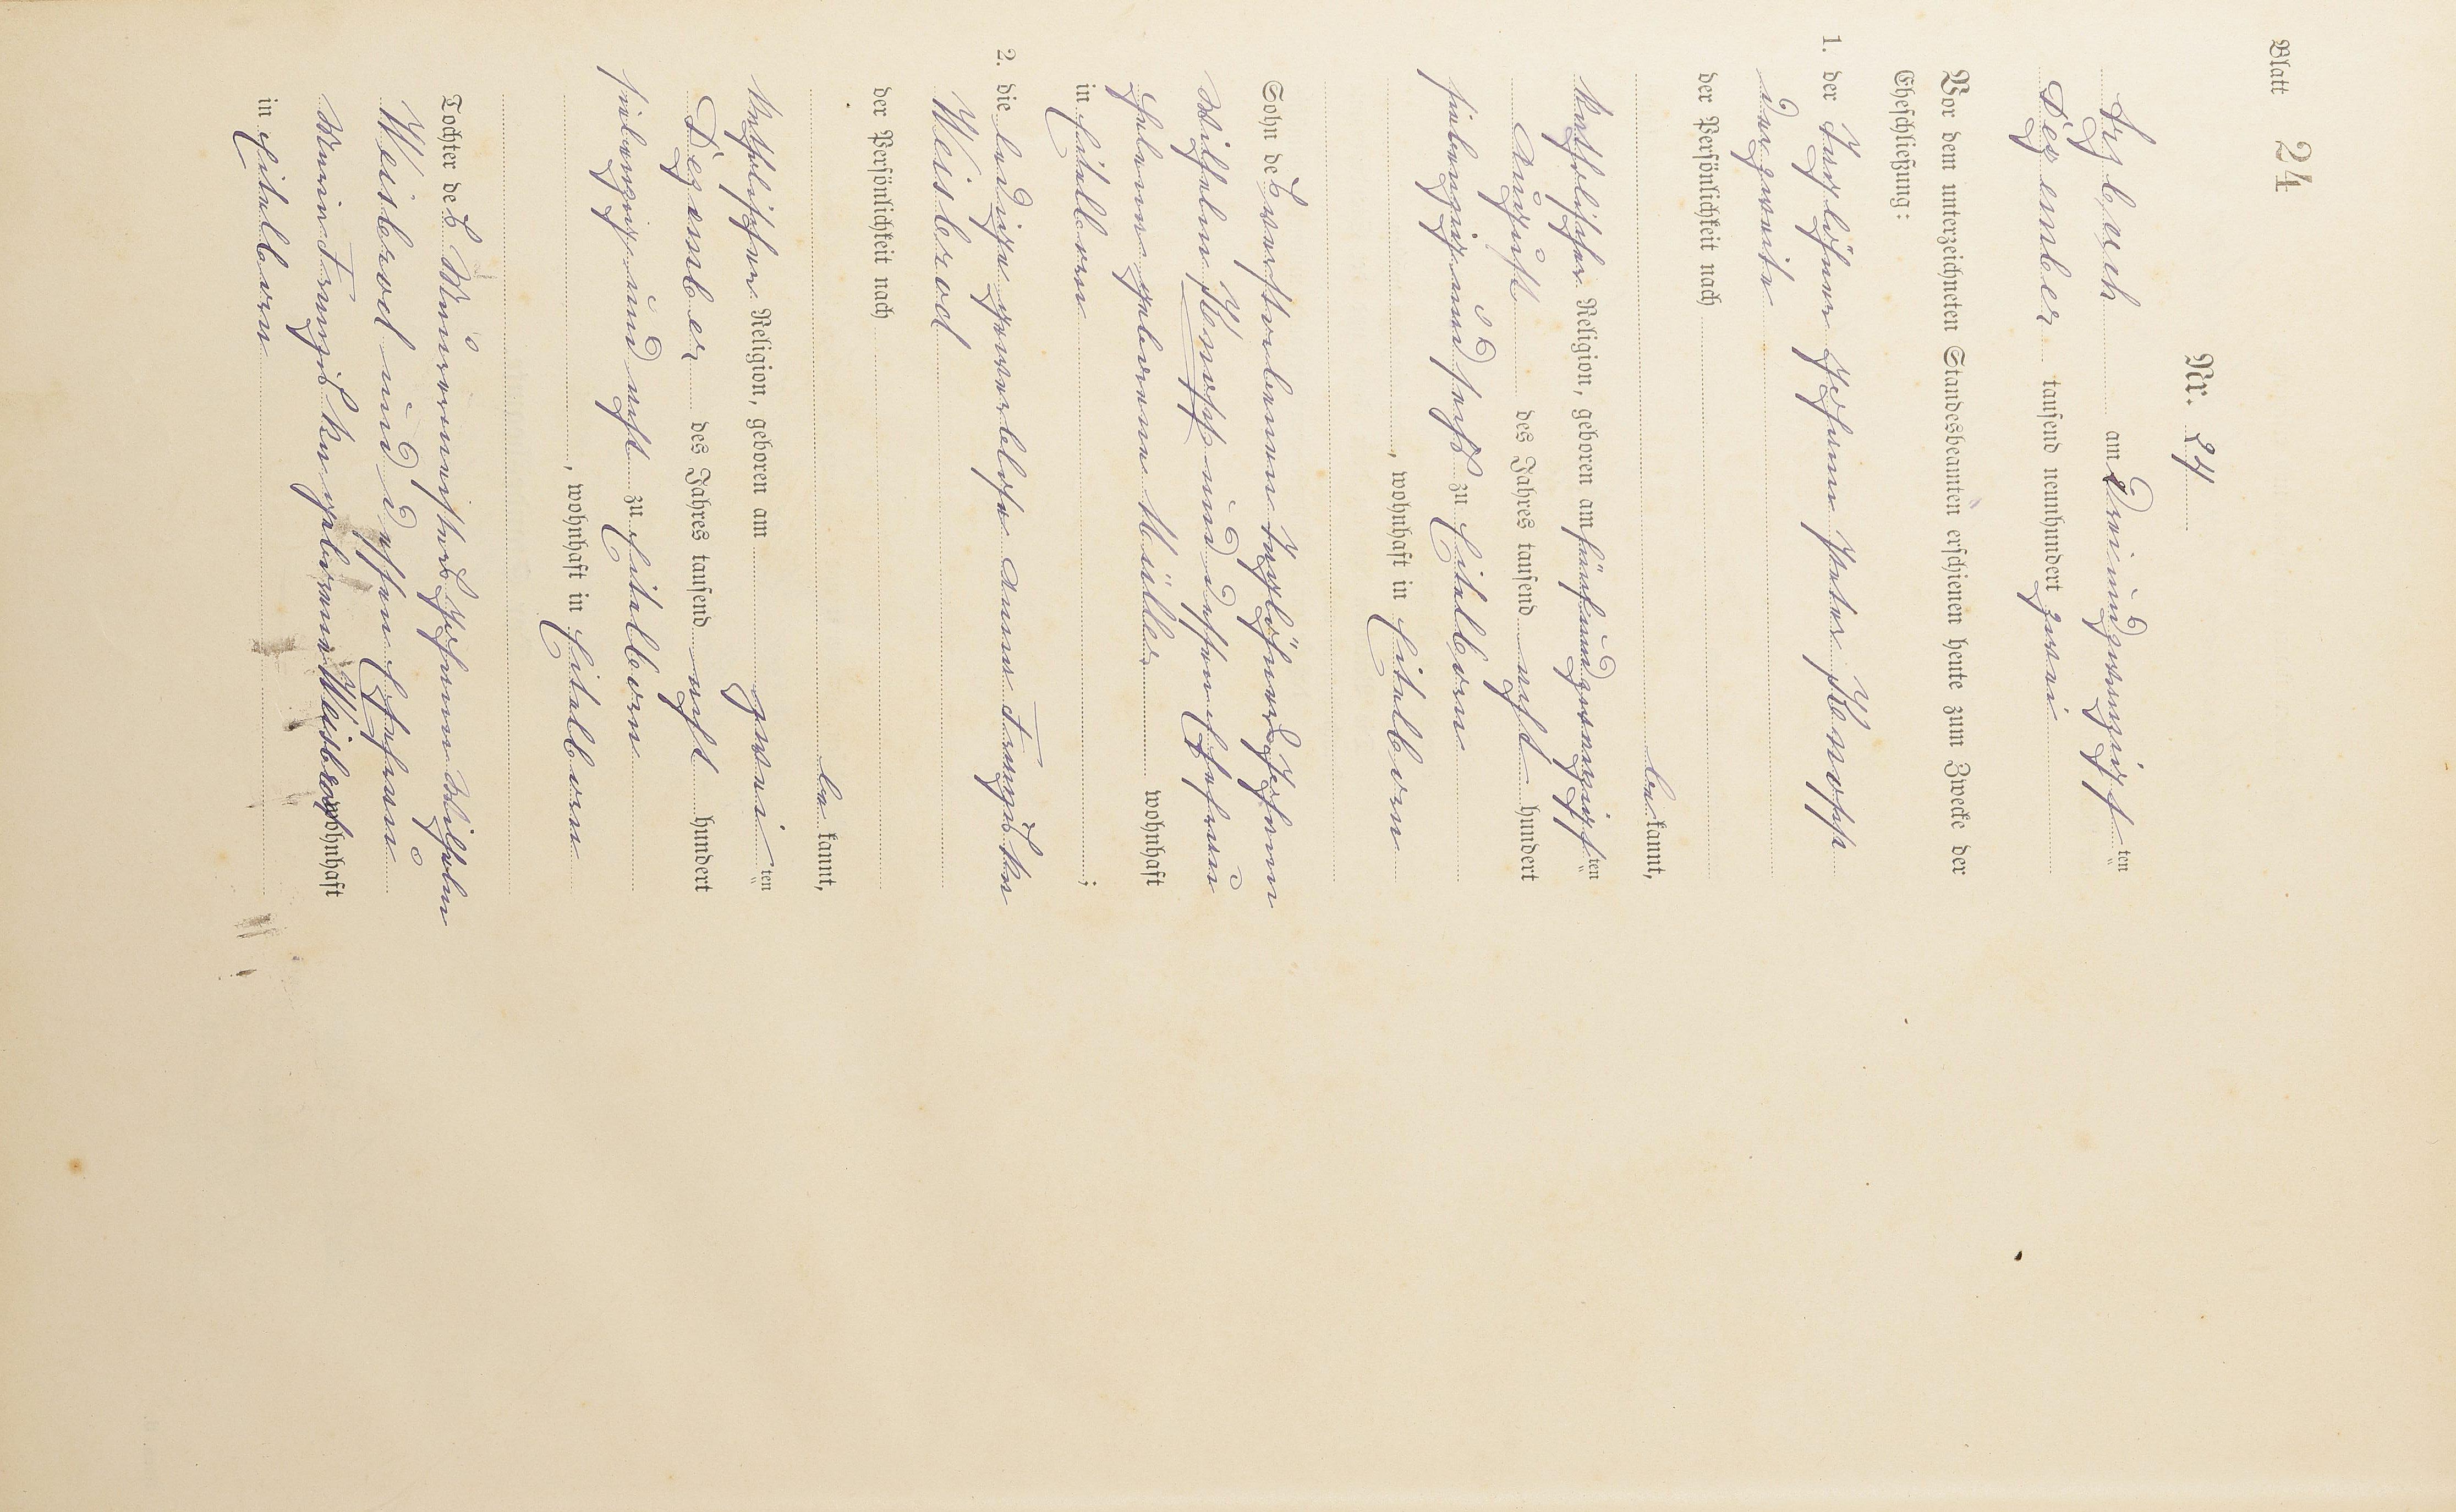 Blatt 24
Nr. 24
Arzbach am Dreiundzwanzigsten
Dezember tausend neunhundert zwei
Vor dem unterzeichneten Standesbeamten erschienen heute zum Zwecke der
Eheschließung:
1. der Taglöhner Johann Peter Knopp
der zweite
der Persönlichkeit nach
bekannt,
katholischer Religion, geboren am fünfundzwanzigsten
August des Jahres tausend acht hundert
siebenzig und sechs zu Eitelborn
, wohnhaft in Eitelborn
Sohn des verstorbenen Taglöhners Johann
Wilhelm Knopp und dessen Ehefrau
Helena geborene Müller wohnhaft
in Eitelborn ;
2. die ledige gewerblose Anna Franziska
Weisbrod
der Persönlichkeit nach
bekannt,
katholischer Religion, geboren am zweiten
Dezember des Jahres tausend acht hundert
siebenzig und acht zu Eitelborn
, wohnhaft in Eitelborn
Tochter des Maurermeisters Johann Wilhelm
Weisbrod und dessen Ehefrau
Maria Franziska geborene Weisbrod wohnhaft
in Eitelborn